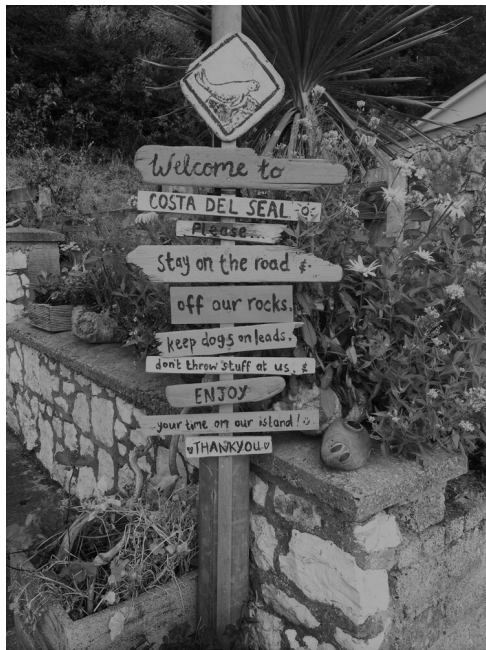 Welcome to
COSTA DEL SEAL
Please...
stay on the road &
off our rocks.
keep dogs on leads.
don't throw stuff at us &
ENJOY
your time on our island!
THANKYOU